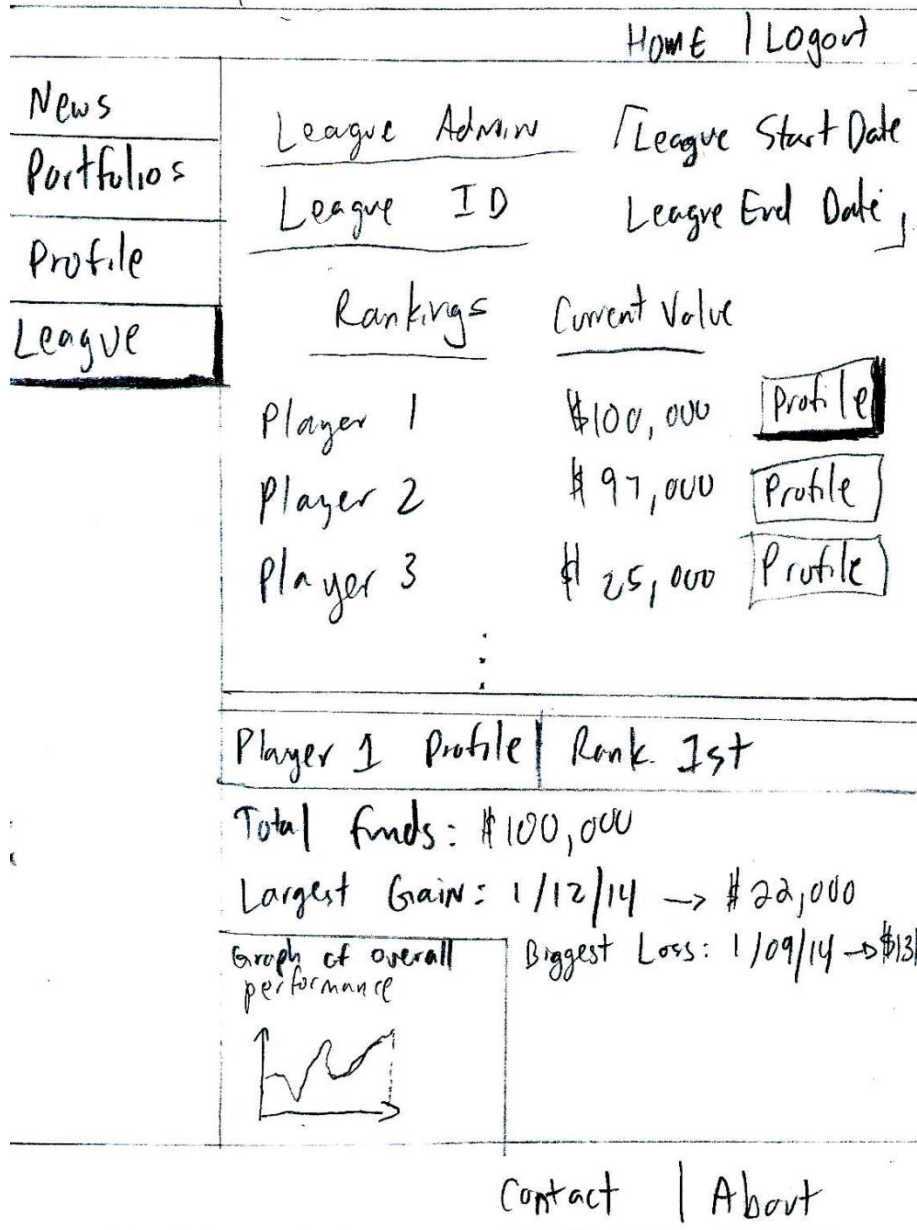 Home | Logout
News
Portfolios
Profile
League
League Admin
League Start Date
League ID
League End Date
Rankings Current Value
Player 1 $100,000 Profile
Player 2 $97,000 Profile
Player 3 $25,000 Profile
Player 1 Profile | Rank 1st
Total funds: $100,000
Largest Gain: 1/12/14 → $22,000
Biggest Loss: 1/09/14 → $13
Graph of overall
performance
Contact | About